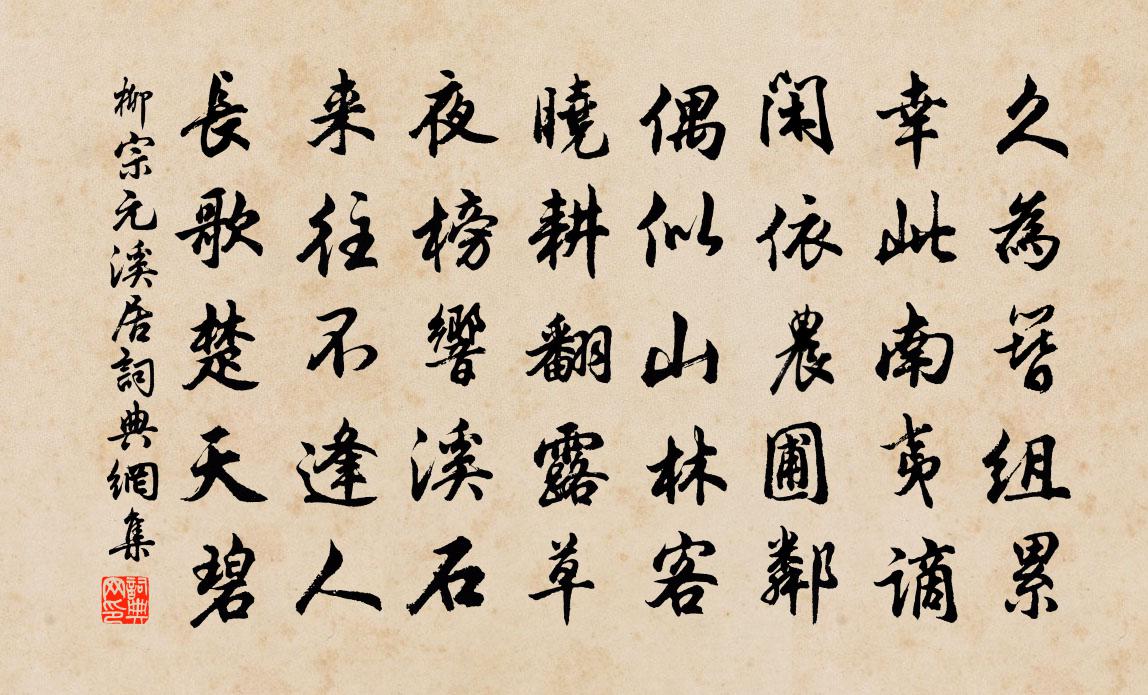 久為簪組累
幸此南夷謫
閑依農圃鄰
偶似山林客
曉耕翻露草
夜榜響溪石
来往不逢人
長歌楚天碧
柳宗元溪居詞典網集
詞典网印